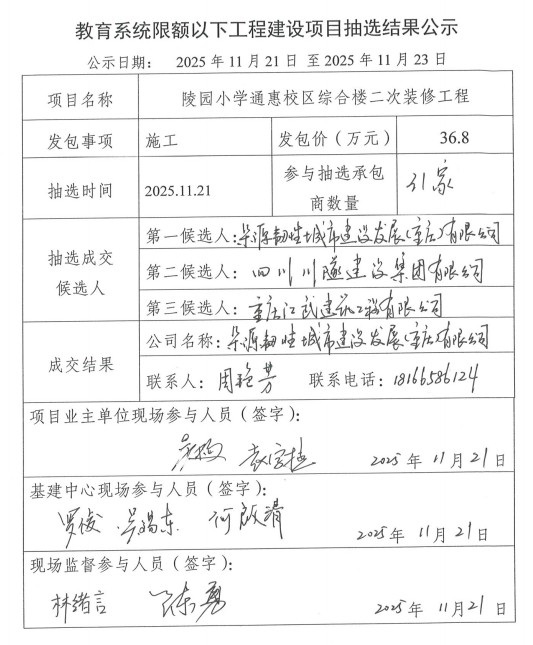 教育系统限额以下工程建设项目抽选结果公示
公示日期： 2025 年 11 月 21 日 至 2025 年 11 月 23 日
项目名称 陵园小学通惠校区综合楼二次装修工程
发包事项 施工 发包价（万元） 36.8
抽选时间 2025.11.21 参与抽选承包商数量 家
抽选成交候选人
第一候选人: 韧性城市建设发展(重庆)有限公司
第二候选人: 四川川隧建设集团有限公司
第三候选人: 重庆江武建筑工程有限公司
成交结果
公司名称: 韧性城市建设发展(重庆)有限公司
联系人: 周艳芳 联系电话: 18166586124
项目业主单位现场参与人员（签字）:
2025 年 11 月 21 日
基建中心现场参与人员（签字）:
罗俊 何啟清 2025 年 11 月 21 日
现场监督参与人员（签字）:
林绪言 陈勇 2025 年 11 月 21 日